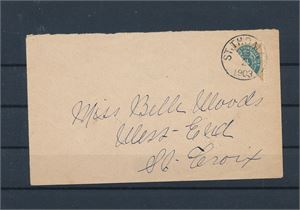 ST. THO
1903
Miss Belle Woods
West-End
St. Croix